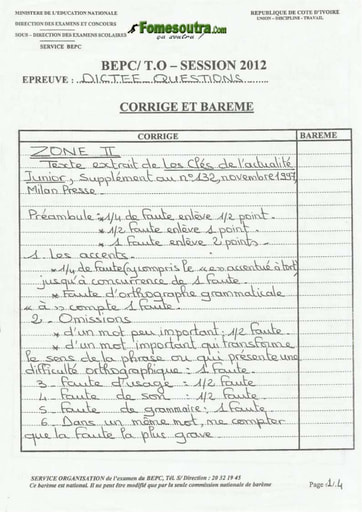 MINISTERE DE L'EDUCATION NATIONALE
REPUBLIQUE DE COTE D'IVOIRE
UNION – DISCIPLINE - TRAVAIL
DIRECTION DES EXAMENS ET CONCOURS
SOUS – DIRECTION DES EXAMENS SCOLAIRES
SERVICE BEPC
Fomesoutra.com
ça soutra !
BEPC/ T.O – SESSION 2012
EPREUVE : DICTEE - QUESTIONS
CORRIGE ET BAREME
CORRIGE
BAREME
ZONE II
Texte extrait de Les Clés de l'actualité
Junior, Supplément au n°132, novembre 1997,
Milan Presse.
Préambule : * 1/4 de faute enlève 1/2 point.
* 1/2 Faute enlève 1 point.
* 1 Faute enlève 2 points.
1. Les accents.
* 1/4 de faute (y compris le « e » accentué à tort)
jusqu'à concurrence de 1 faute.
* Faute d'orthographe grammaticale
« à » compte 1 faute.
2 - Omissions
* d'un mot peu important : 1/2 Faute.
* d'un mot important qui transforme
le sens de la phrase ou qui présente une
difficulté orthographique : 1 Faute.
3 - Faute d'usage : 1/2 Faute
4 - Faute de son : 1/2 Faute
5 - Faute de grammaire : 1 Faute.
6 - Dans un même mot, ne compter
que la faute la plus grave.
SERVICE ORGANISATION de l'examen du BEPC, Tél. S/ Direction : 20 32 19 45
Ce barème est national. Il ne peut être modifié que par la seule commission nationale de barème
Page : 1/4